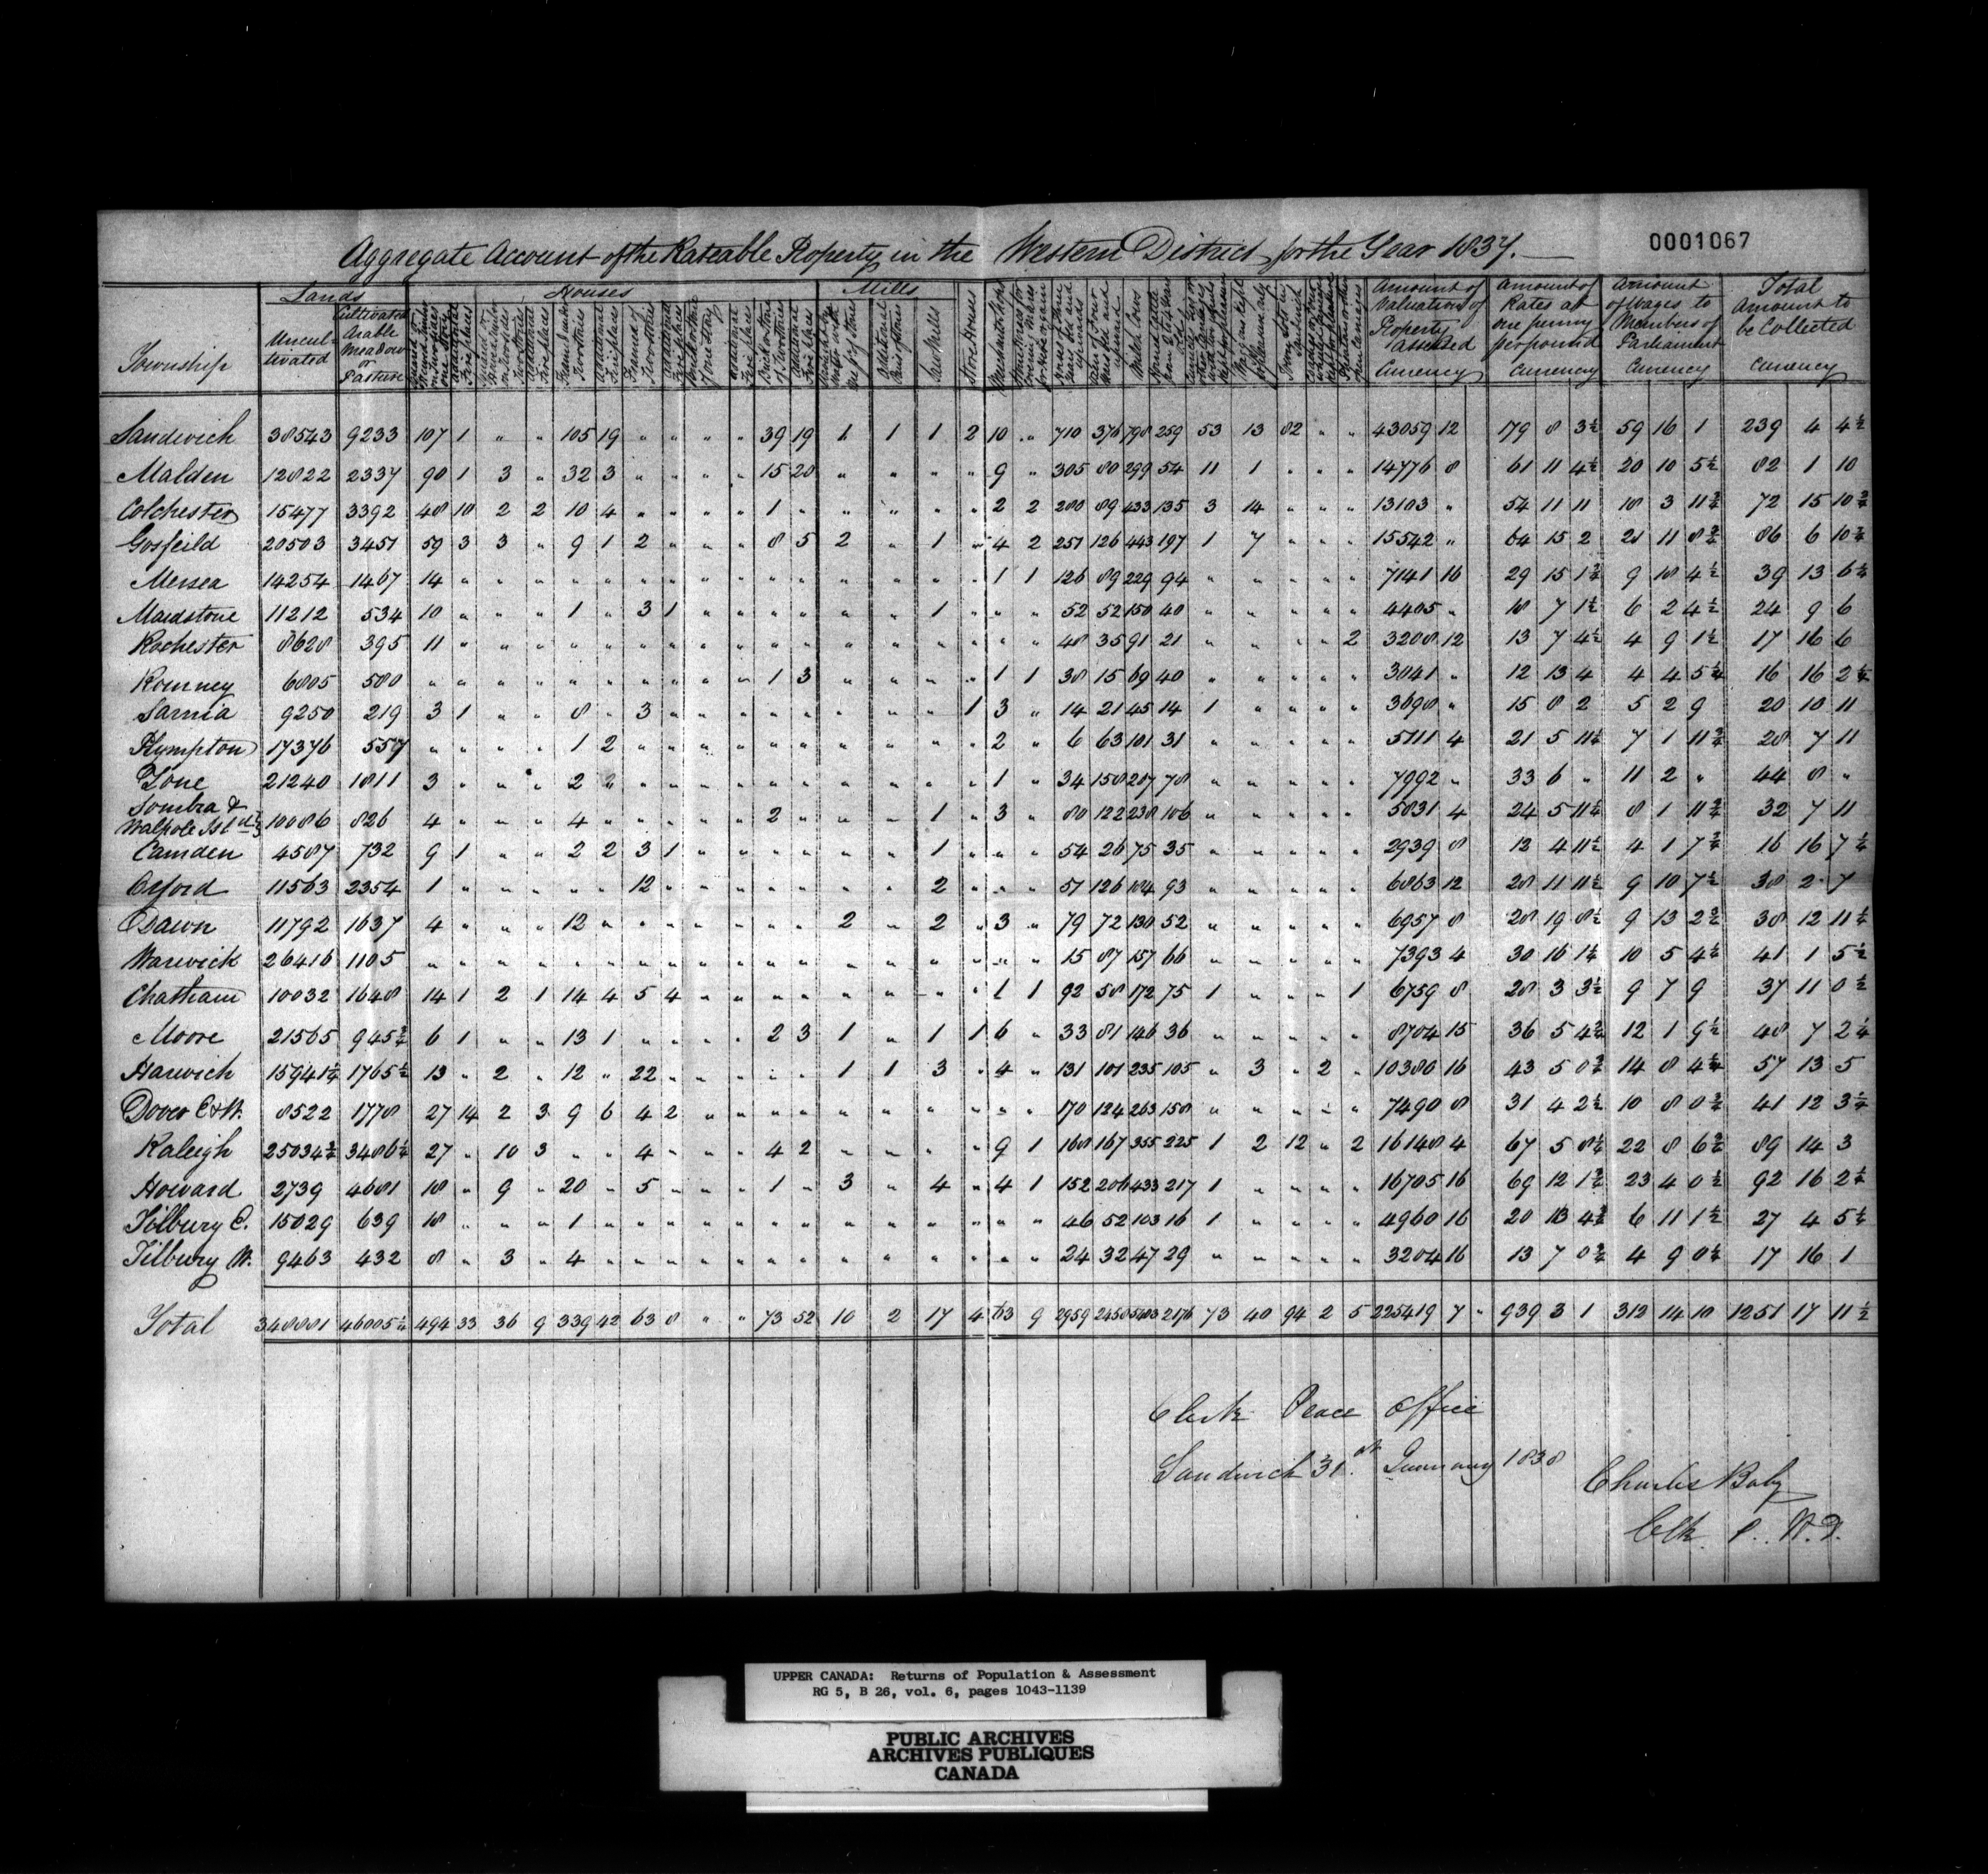 0001067
Aggregate Account of the Rateable Property in the Western District for the Year 1837.
Lands Houses Mills
Township
Uncultivated
Cultivated Arable Meadow or Pasture
additional Fire places
Saw Mills
Store Houses
Merchants Shops
Milch Cows
Amount of Valuation of Property assessed Currency
Amount of Rates at one penny per pound Currency
Amount of Wages to Members of Parliament Currency
Total Amount to be Collected Currency
Sandwich 38543 9233 107 1 " " 105 19 " " " " 39 19 1 1 1 2 10 " 710 376 798 259 53 13 82 " " 43059 12 179 8 3½ 59 16 1 239 4 4½
Malden 12822 2337 90 1 3 " 32 3 " " " " 15 20 " " " " 9 " 305 80 299 54 11 1 " " " 14776 8 61 11 4½ 20 10 5½ 82 1 10
Colchester 15477 3392 48 10 2 2 10 4 " " " " 1 " " " " " 2 2 280 89 433 135 3 14 " " " 13103 " 54 11 11 18 3 11¾ 72 15 10¾
Gosfeild 20503 3451 59 3 3 " 9 1 2 " " " 8 5 2 " 1 " 4 2 251 126 443 197 1 7 " " " 15542 " 64 15 2 21 11 8¾ 86 6 10¾
Mersea 14254 1467 14 " " " " " " " " " " " " " " " 1 1 126 89 229 94 " " " " " 7141 16 29 15 1¾ 9 18 4½ 39 13 6¼
Maidstone 11212 534 10 " " " 1 " 3 1 " " " " " " 1 " " " 52 52 150 40 " " " " " 4405 " 18 7 1½ 6 2 4½ 24 9 6
Rochester 8628 395 11 " " " " " " " " " " " " " " " " " 48 35 91 21 " " " " 2 3208 12 13 7 4½ 4 9 1½ 17 16 6
Romney 6805 580 " " " " " " " " " " 1 3 " " " " 1 1 38 15 69 40 " " " " " 3041 " 12 13 4 4 4 5¼ 16 16 2¼
Sarnia 9250 219 3 1 " " 8 " 3 " " " " " " " " 1 3 " 14 21 45 14 1 " " " " 3698 " 15 8 2 5 2 9 20 10 11
Plympton 17376 557 " " " " 1 2 " " " " " " " " " " 2 " 6 63 101 31 " " " " " 5111 4 21 5 11¼ 7 1 11¾ 28 7 11
Zone 21240 1811 3 " " " 2 " " " " " " " " " " " 1 " 34 158 207 78 " " " " " 7992 " 33 6 " 11 2 " 44 8 "
Sombra &
Walpole Islds 10086 826 4 " " " 4 " " " " " 2 " " " 1 " 3 " 80 122 238 106 " " " " " 5831 4 24 5 11¼ 8 1 11¾ 32 7 11
Camden 4587 732 9 1 " " 2 2 3 1 " " " " " " 1 " " " 54 26 75 35 " " " " " 2939 8 12 4 11½ 4 1 7¾ 16 16 7¼
Orford 11563 2354 1 " " " " " 12 " " " " " " " 2 " " " 51 126 184 93 " " " " " 6863 12 28 11 11½ 9 10 7½ 38 2 7
Dawn 11792 1637 4 " " " 12 " " " " " " " 2 " 2 " 3 " 79 72 130 52 " " " " " 6957 8 28 19 8½ 9 13 2¾ 38 12 11¼
Warwick 26416 1105 " " " " " " " " " " " " " " " " " " 15 87 157 66 " " " " " 7393 4 30 16 1¼ 10 5 4¼ 41 1 5½
Chatham 10032 1648 14 1 2 1 14 4 5 4 " " " " " " " " 1 1 92 58 172 75 1 " " " 1 6759 8 28 3 3½ 9 7 9 37 11 0½
Moore 21565 945¾ 6 1 " " 13 1 " " " " 2 3 1 " 1 1 6 " 33 81 146 36 " " " " " 8704 15 36 5 4¾ 12 1 9½ 48 7 2¼
Harwich 15941¼ 1765½ 13 " 2 " 12 " 22 " " " " " 1 1 3 " 4 " 131 101 235 105 " 3 " 2 " 10380 16 43 5 0¾ 14 8 4¼ 57 13 5
Dover E & W. 8522 1778 27 14 2 3 9 6 4 2 " " " " " " " " " " 170 124 263 158 " " " " " 7490 8 31 4 2½ 10 8 0¾ 41 12 3¼
Raleigh 25034¾ 3486¼ 27 " 10 3 " " 4 " " " 4 2 " " " " 9 1 168 167 355 225 1 2 12 " 2 16148 4 67 5 8½ 22 8 6¾ 89 14 3
Howard 2739 4681 18 " 9 " 20 " 5 " " " 1 " 3 " 4 " 4 1 152 206 433 217 1 " " " " 16705 16 69 12 1¾ 23 4 0½ 92 16 2¼
Tilbury E. 15029 639 18 " " " 1 " " " " " " " " " " " " " 46 52 103 16 1 " " " " 4960 16 20 13 4¾ 6 11 1½ 27 4 5¼
Tilbury W. 9463 432 8 " 3 " 4 " " " " " " " " " " " " " 24 32 47 29 " " " " " 3204 16 13 7 0¾ 4 9 0¼ 17 16 1
Total 348881 46005¼ 494 33 36 9 339 42 63 8 " " 73 52 10 2 17 4 63 9 2959 2450 5403 2176 73 40 94 2 5 225419 7 " 939 3 1 312 14 10 1251 17 11½
Clerk Peace Office
Sandwich 31st January 1838
Charles Baby
Clk. P. W.D.
UPPER CANADA: Returns of Population & Assessment
RG 5, B 26, vol. 6, pages 1043-1139
PUBLIC ARCHIVES
ARCHIVES PUBLIQUES
CANADA